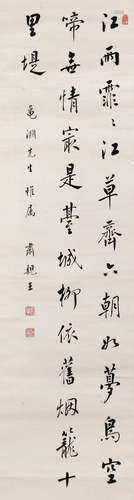 江雨霏霏江草齊六朝如夢鳥空
啼無情最是臺城柳依舊烟籠十
里堤
龜淵先生雅屬
肅親王